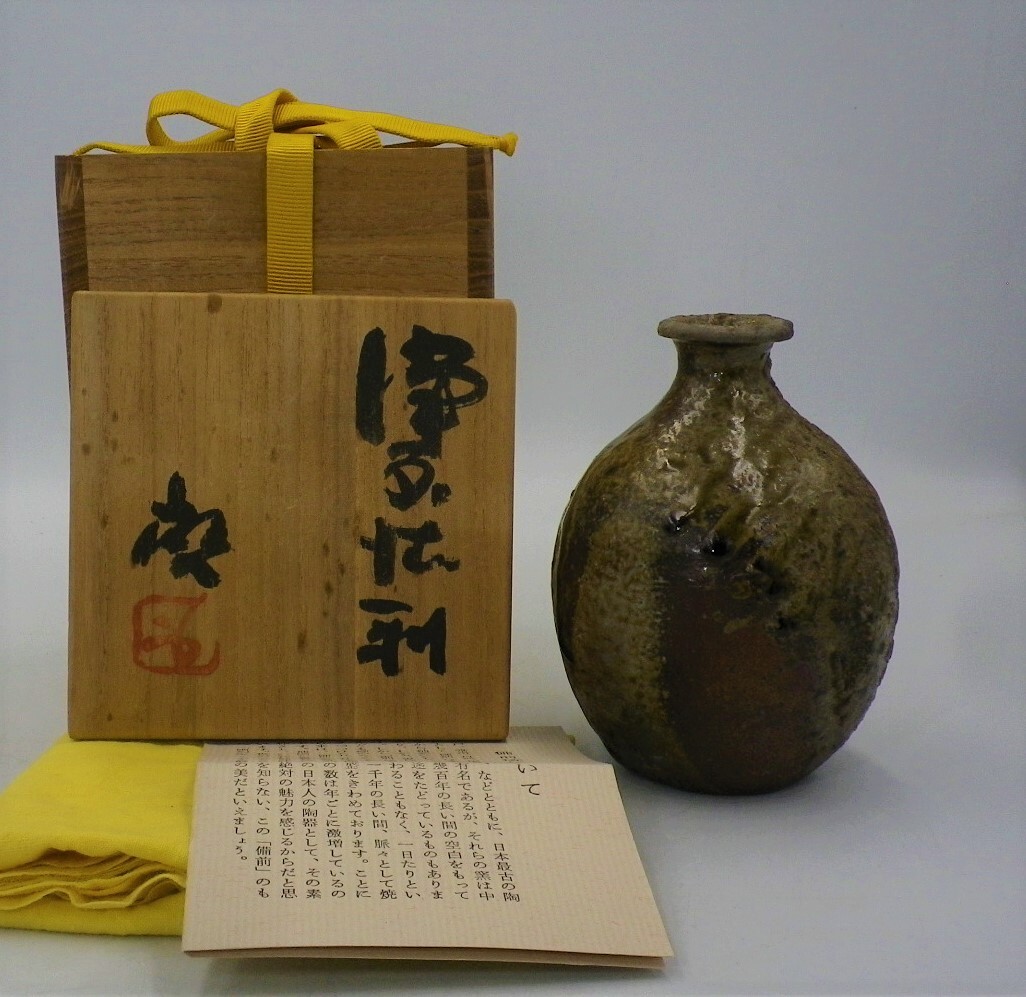 備前徳利
いて
などとともに、日本最古の陶
有名であるが、それらの窯は中
百年の長い間の空白をもって
をたどっているものもありま
わることもなく、一日たりとい
一千年の長い間、脈々として焼
をきわめております。ことに
の数は年ごとに激増しているの
の日本人の陶器として、その素
絶対の魅力を感じるからだと思
を知らない、この「備前」のも
の美だといえましょう。